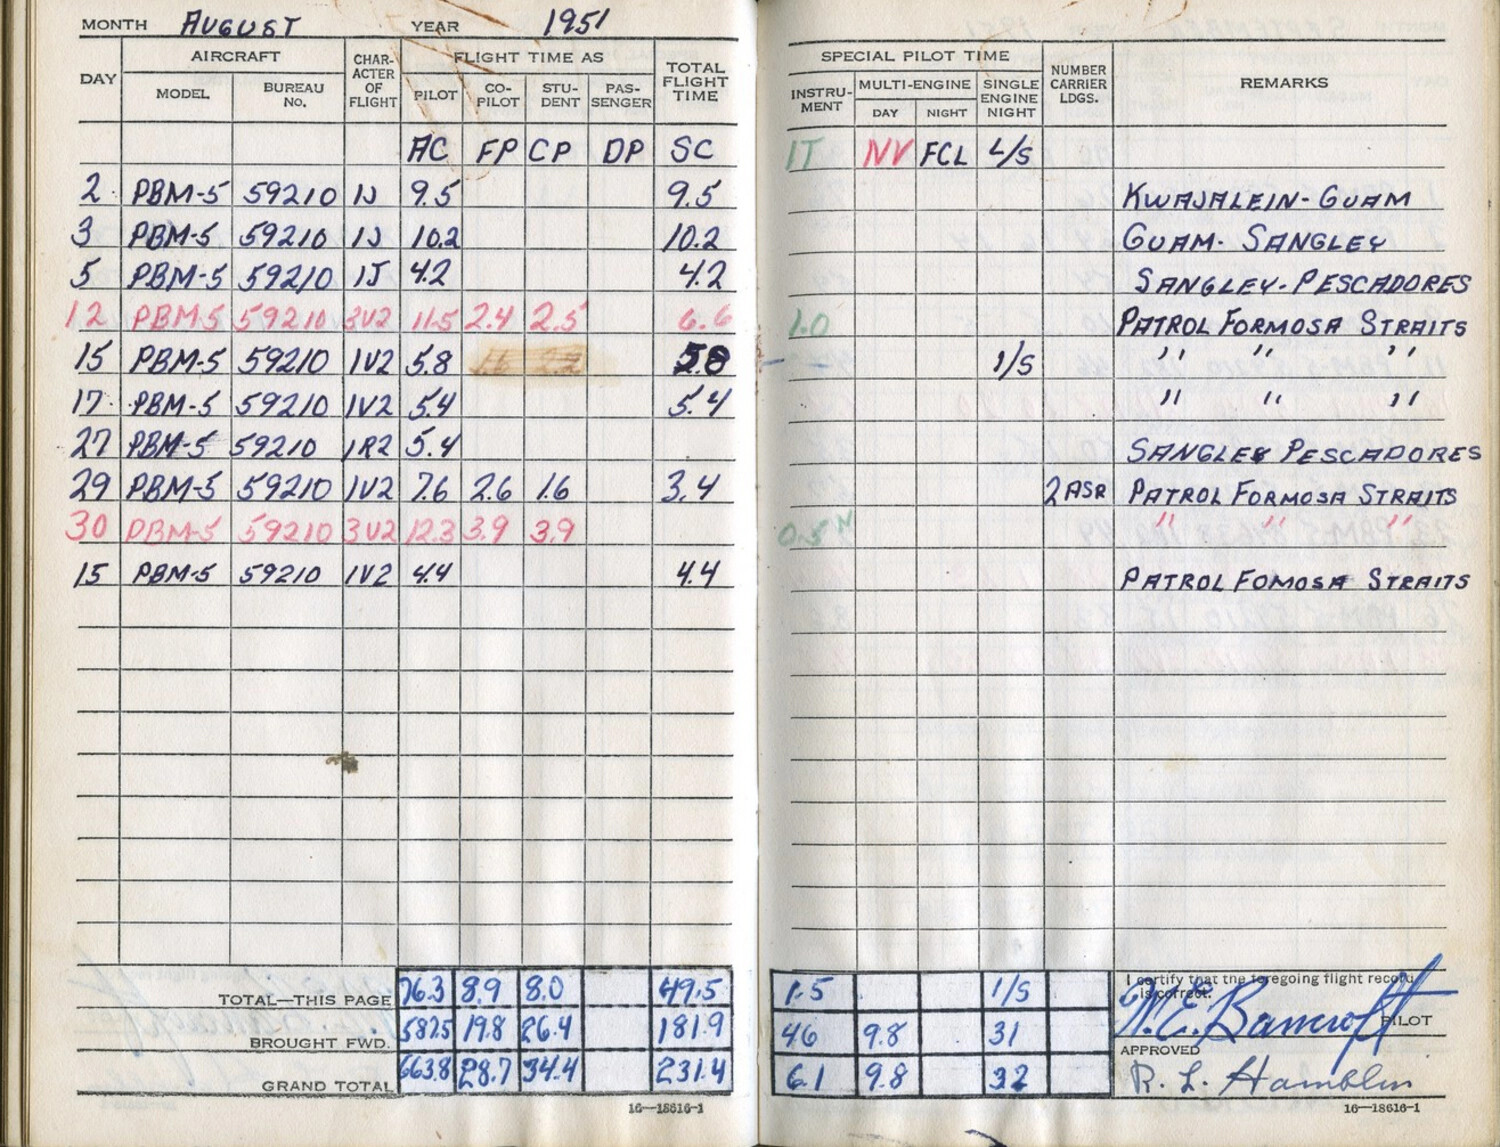 MONTH AUGUST YEAR 1951
DAY AIRCRAFT CHARACTER OF FLIGHT FLIGHT TIME AS TOTAL FLIGHT TIME
MODEL BUREAU NO. PILOT CO-PILOT STUDENT PASSENGER
AC FP CP DP SC
2 PBM-5 59210 1J 9.5 9.5
3 PBM-5 59210 1J 10.2 10.2
5 PBM-5 59210 1J 4.2 4.2
12 PBM-5 59210 3V2 11.5 2.4 2.5 6.6
15 PBM-5 59210 1V2 5.8 5.8
17 PBM-5 59210 1V2 5.4 5.4
27 PBM-5 59210 1R2 5.4
29 PBM-5 59210 1V2 7.6 2.6 1.6 3.4
30 PBM-5 59210 3V2 12.3 3.9 3.9
15 PBM-5 59210 1V2 4.4 4.4
TOTAL—THIS PAGE 76.3 8.9 8.0 49.5
BROUGHT FWD. 587.5 19.8 26.4 181.9
GRAND TOTAL 663.8 28.7 34.4 231.4
16—18616-1
SPECIAL PILOT TIME NUMBER CARRIER LDGS. REMARKS
INSTRUMENT MULTI-ENGINE SINGLE ENGINE NIGHT
DAY NIGHT
IT NV FCL L/S
KWAJALEIN-GUAM
GUAM-SANGLEY
SANGLEY-PESCADORES
1.0 PATROL FORMOSA STRAITS
1/S " " "
" " "
SANGLEY PESCADORES
2 ASR PATROL FORMOSA STRAITS
0.5 N " " "
PATROL FOMOSA STRAITS
1.5 1/S
46 9.8 31
6.1 9.8 32
I certify that the foregoing flight record is correct.
W. E. Bancroft PILOT
APPROVED
R. L. Hamblin
16—18616-1